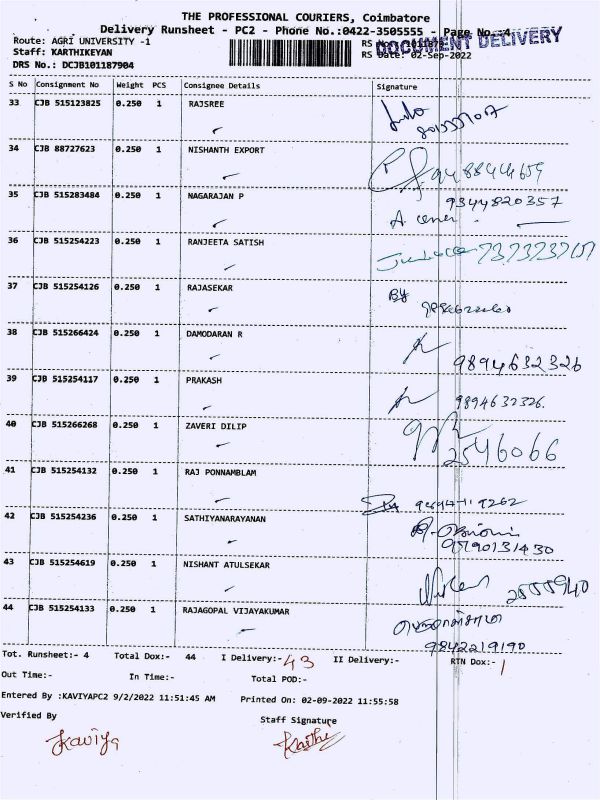 THE PROFESSIONAL COURIERS, Coimbatore
Delivery Runsheet - PC2 - Phone No.:0422-3505555 - Page No.:4
Route: AGRI UNIVERSITY -1
DOCUMENT DELIVERY
Staff: KARTHIKEYAN
RS Date: 02-Sep-2022
DRS No.: DCJB101187904
S No Consignment No Weight PCS Consignee Details Signature
33 CJB 515123825 0.250 1 RAJSREE
34 CJB 88727623 0.250 1 NISHANTH EXPORT
35 CJB 515283484 0.250 1 NAGARAJAN P 9344820357
36 CJB 515254223 0.250 1 RANJEETA SATISH
37 CJB 515254126 0.250 1 RAJASEKAR
38 CJB 515266424 0.250 1 DAMODARAN R
9894632326
39 CJB 515254117 0.250 1 PRAKASH
9894632326.
40 CJB 515266268 0.250 1 ZAVERI DILIP
2546066
41 CJB 515254132 0.250 1 RAJ PONNAMBLAM
42 CJB 515254236 0.250 1 SATHIYANARAYANAN
43 CJB 515254619 0.250 1 NISHANT ATULSEKAR
44 CJB 515254133 0.250 1 RAJAGOPAL VIJAYAKUMAR
9842219190
Tot. Runsheet:- 4 Total Dox:- 44 I Delivery:- 43 II Delivery:- RTN Dox:- 1
Out Time:- In Time:- Total POD:-
Entered By :KAVIYAPC2 9/2/2022 11:51:45 AM Printed On: 02-09-2022 11:55:58
Verified By Staff Signature
Kaviya Karthi